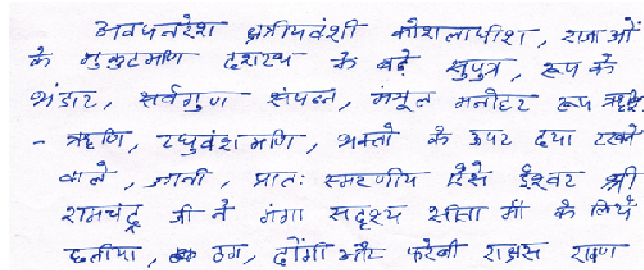 अवधनरेश क्षत्रीयवंशी कौशलाधीश, राजाओं
के मुकुटमणि दशरथ के बड़े सुपुत्र, रूप के
भंडार, सर्वगुण संपन्न, मंजूल मनोहर रूप
रघुवंशमणि, भक्तो के ऊपर दया रखने
वाले, ज्ञानी, प्रातः स्मरणीय ऐसे ईश्वर श्री
रामचंद्र जी ने गंगा सदृश्य सीता माँ के लिये
छलीया, ठग, ढोंगी और फरेबी राक्षस रावण